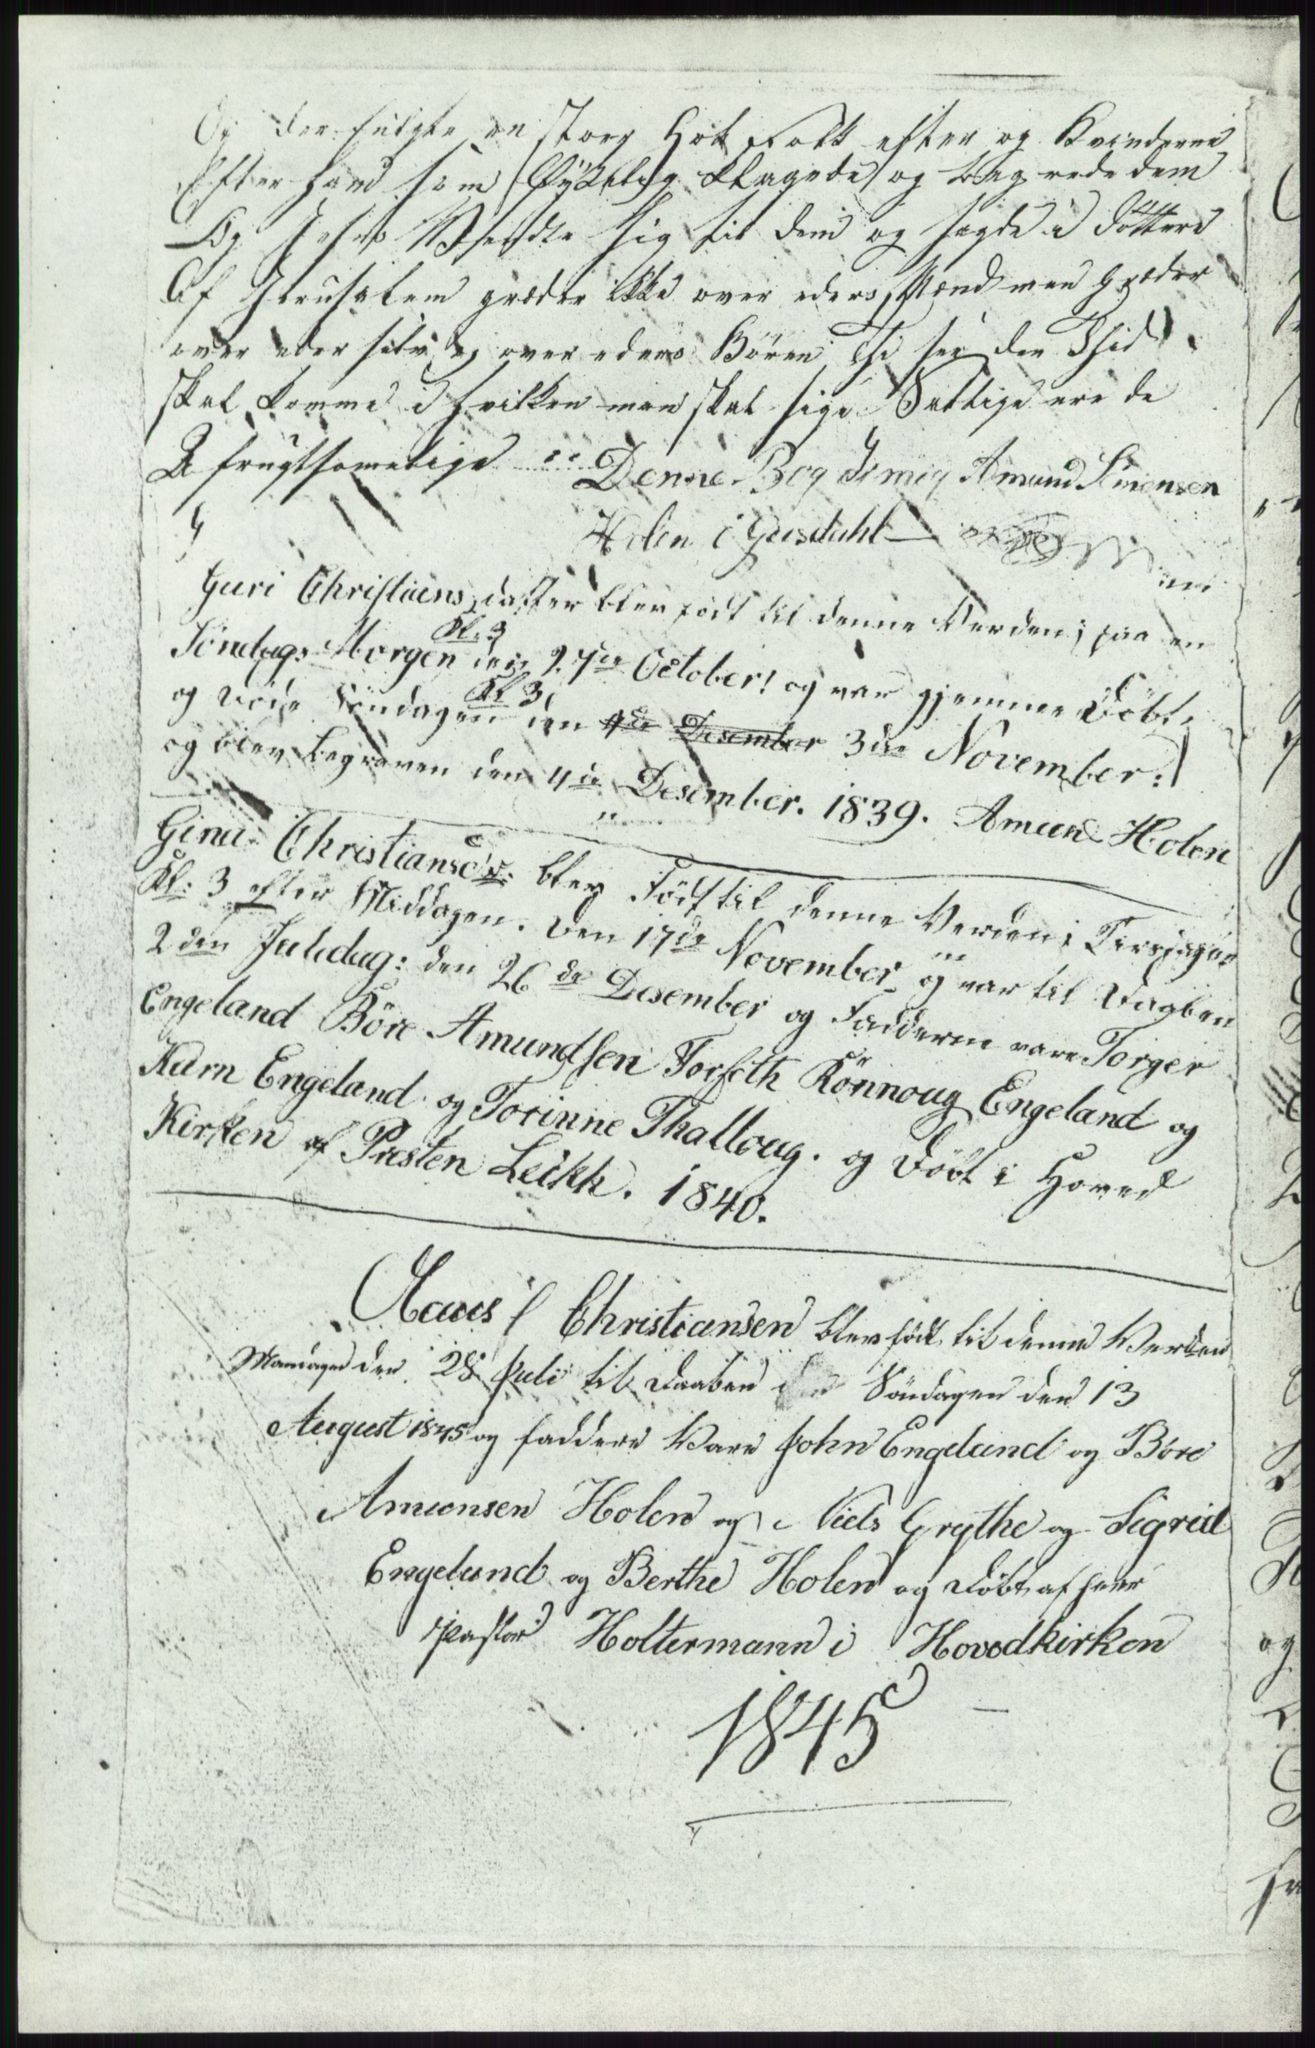 Og der fulgte en storg Hob Folk efter og Kvinderne
Efter ham som Ÿkelig klagede og beg rede dem
Og Jesus Vhendte sig til dem og sagde i Döttere
Af Jerusalem græder ikke over eders Mænd men græder
over eder selv og over eders Bören thi see den Thid
skal komme i hvilken man skal sige Sallige ere de
U frugtsomelige Denne Bog Er mig Amund Simensen
Holen i Gusdahl
Guri Christians datter blev födt til denne Verden i paa en
Kl: 3
Söndags Morgen den 27de October! og var gjemme Döbt
Kl 3
og Döde Söndagen den 4de Desember 3de November:
og blev begraven den 4de Desember. 1839. Amun Holen
Ginu Christiansd. blev Födt til denne Verden; Tirsdagen
Kl: 3 efter Middagen. Den 17de November og var til Daaben
2den Juledag: den 26de Desember og Fadderne vare Torger
Engeland Böre Amundsen Forseth Rönnoug Engeland og
Karn Engeland og Torinne Thalloug. og Döbt i Hoved
Kirken af Presten Leikh. 1840.
Claus Christiansen blev födt til denne Verden
Mandagen den 28 Juli til Daaben Söndagen den 13
August 1845 og faddere Vare John Engeland og Böre
Amunsen Holen og Niels Grythe og Sigrid
Engeland og Berthe Holen og Döbt af herr
Pastor Holtermann i Hovedkirken
1845